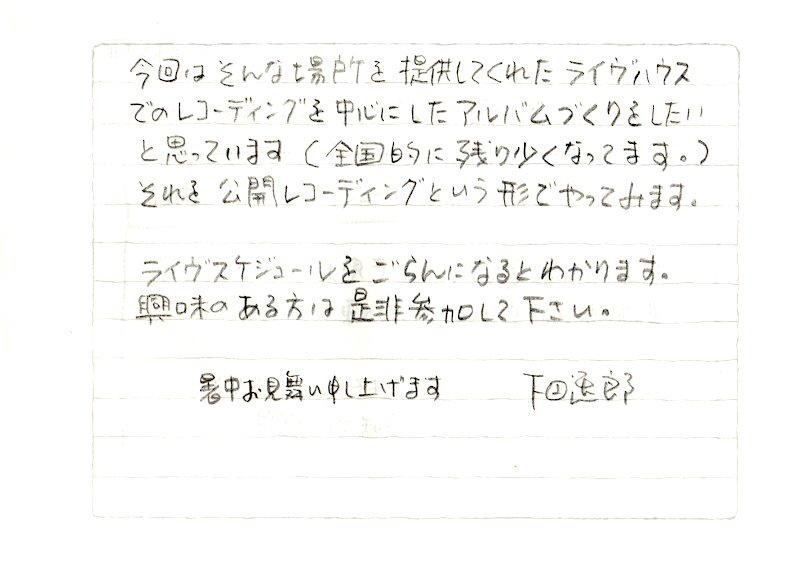 今回はそんな場所を提供してくれたライヴハウス
でのレコーディングを中心にしたアルバムづくりをしたい
と思っています(全国的に残り少くなってます。)
それを公開レコーディングという形でやってみます。
ライヴスケジュールをごらんになるとわかります。
興味のある方は是非参加して下さい。
暑中お見舞い申し上げます 下田逸郎